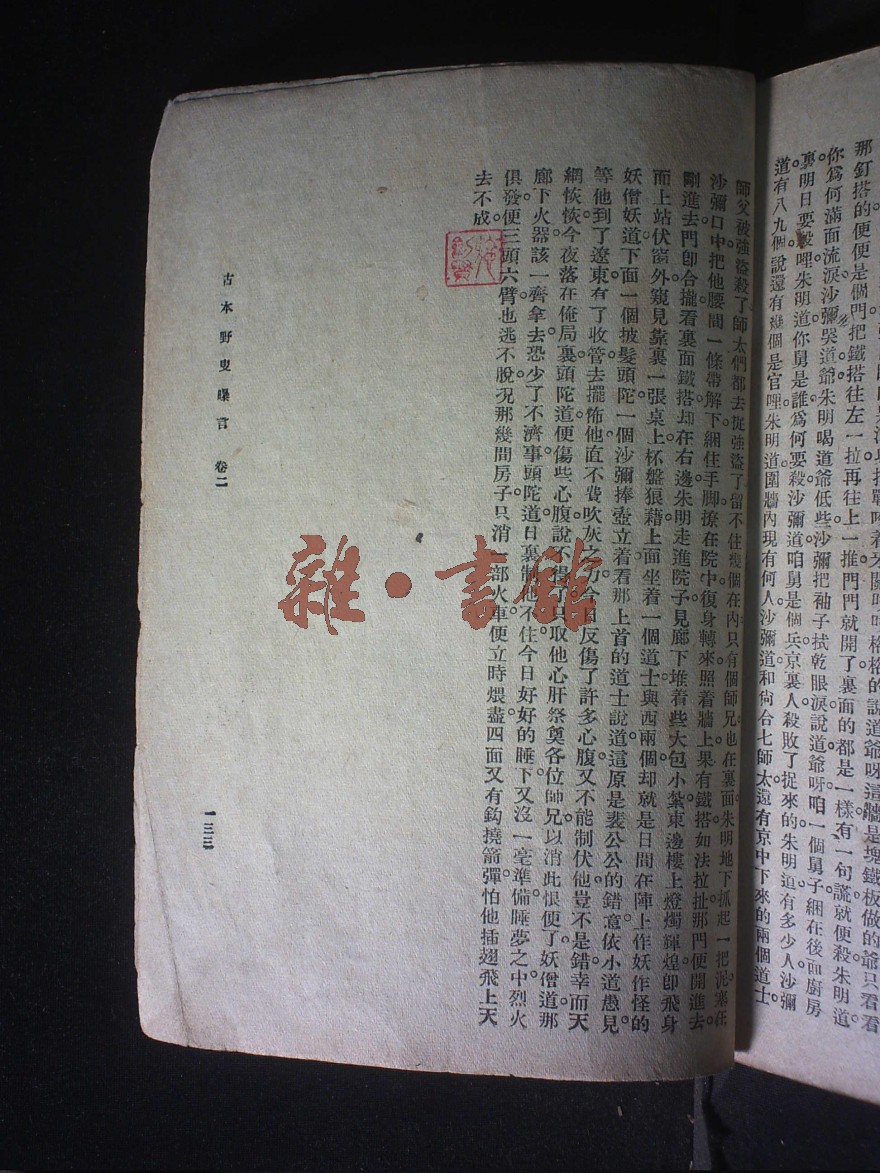 那釘搭的便便是個門把鐵搭往左一拉再往上一推門門就開了裏面的都是一樣有一句謊就便殺朱明道
你爲何滿面流淚沙彌哭道爺朱明喝道爺低些沙彌把袖子拭乾眼淚說道爺呀咱一個舅子綑在後面廚房
裏明日要殺哩朱明道你舅是誰爲何要殺沙彌道咱舅是個兵京裏人殺敗了捉來的朱明道有多少人沙彌
道有八九個說還有幾個是官哩朱明道圍牆內現有何人沙彌道和尙合七師太還有京中下來的兩個道士
師父被強盜殺了師太們都去捉強盜了留不住幾個在內只有個師兄也在裏面朱明地下抓起一把泥塞在
沙彌口中把他腰間一條帶解下綑住手脚撩在院中復身轉來照着牆上果有鐵搭如法拉扯那門便開進去
剛進去門卽合攏看裏面鐵搭却在右邊朱明走進院子見廊下堆着些大包小紮東邊樓上燈燭輝煌卽飛身
而上站伏窗外窺見靠裏一張桌上杯盤狼藉上面坐着一個道士與西兩個却就是日間在陣上作妖作怪的
妖僧妖道下面一個披髮頭陀一個沙彌捧壺立着看那上首的道士說道這原是裴公公的錯意依小道愚見
等他到了遼東有了收管去擺佈他直不費吹灰之力今日反傷了許多心腹又不能制伏他豈不是錯幸而天
網恢恢今夜落在俺局裏頭陀道便傷些心腹說不得只取他心肝祭奠各位師兄以消此恨便了妖僧道那
廊下火器該一齊拿去恐少了不濟事頭陀道日裏制他不住今日好好的睡下又沒一毫準備睡夢之中烈火
俱發便三頭六臂也逃不脫况那幾間房子只消一部火車便立時煨盡四面又有鈎撓箭彈怕他插翅飛上天
去不成
古本野叟曝言 卷二
一三三
雜·書館